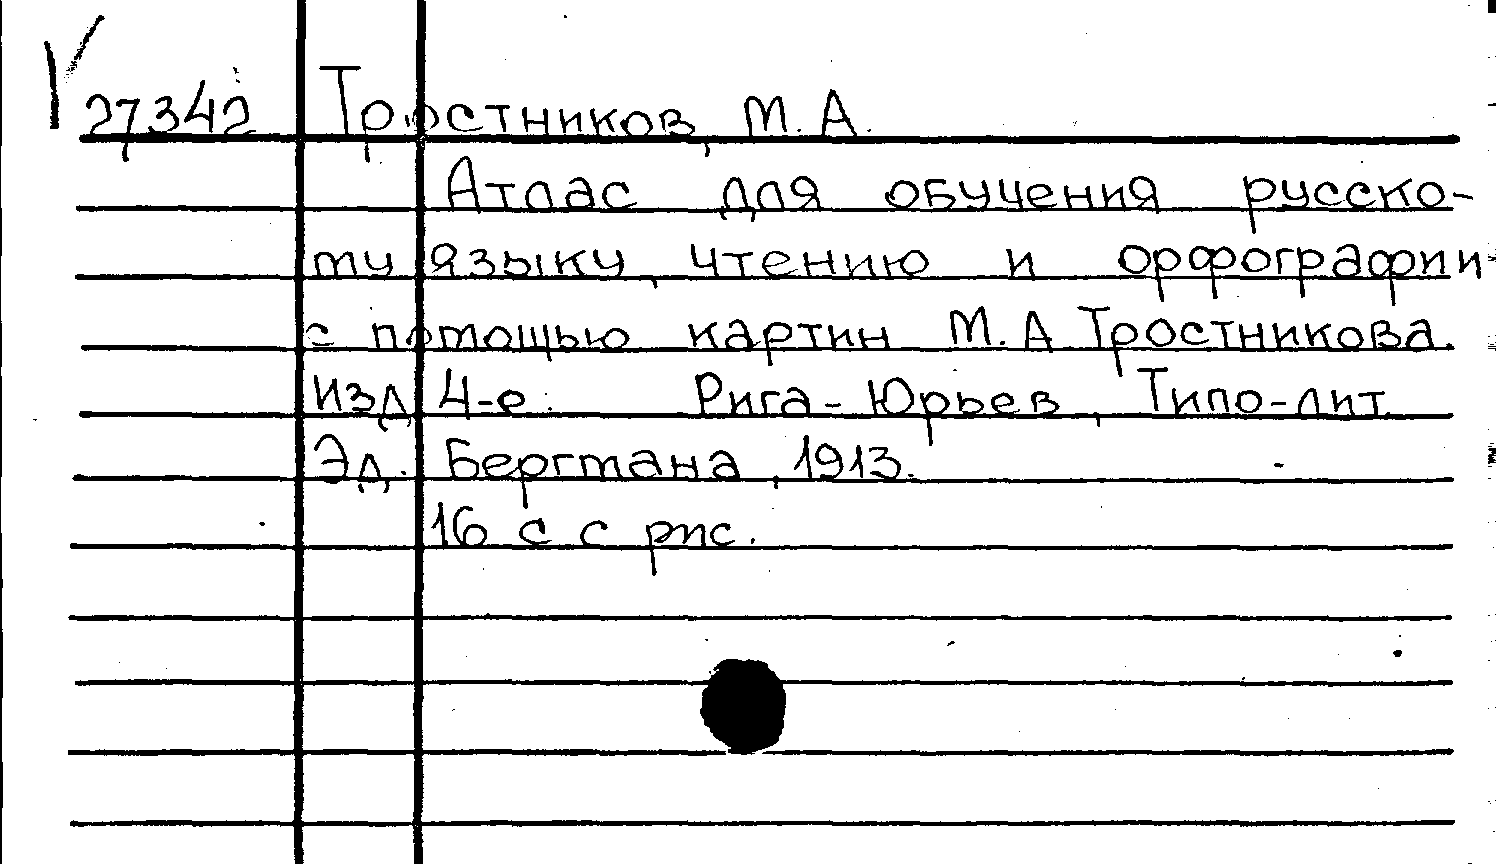 27342 Тростников, М. А.
Атлас для обучения русско-
му языку, чтению и орфографии
с помощью картин М. А Тростникова.
Изд 4-е. Рига-Юрьев, Типо-лит
Эд. Бергмана, 1913.
16 с с рис.